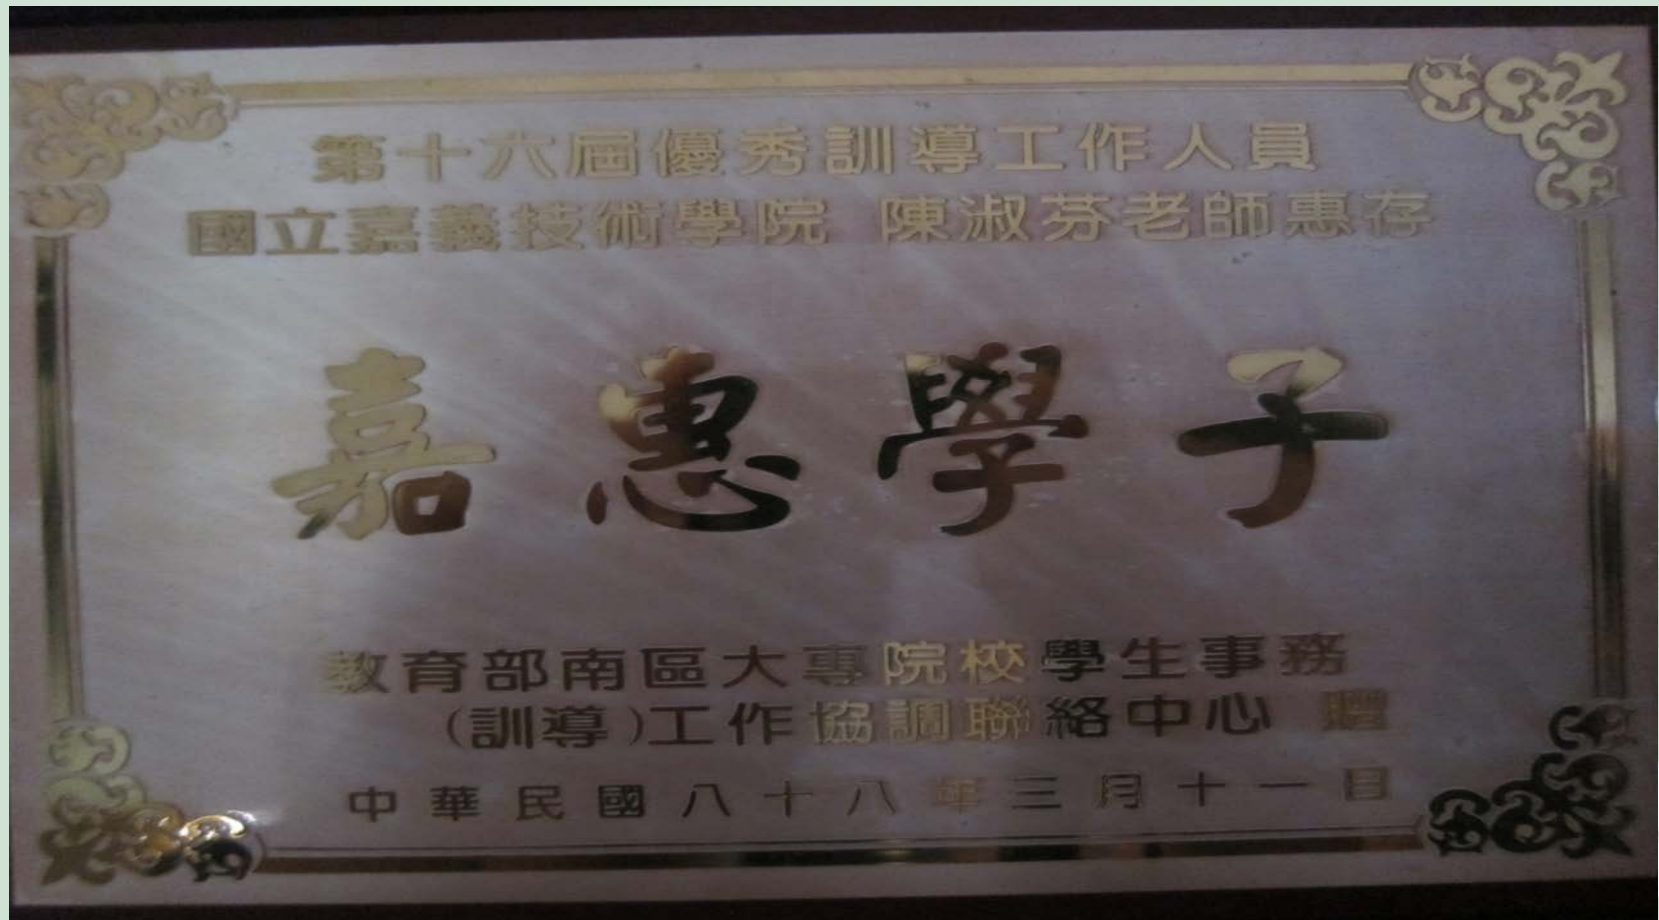 第十六屆優秀訓導工作人員
國立嘉義技術學院 陳淑芬老師惠存
嘉惠學子
教育部南區大專院校學生事務
(訓導)工作協調聯絡中心 贈
中華民國八十八年三月十一日